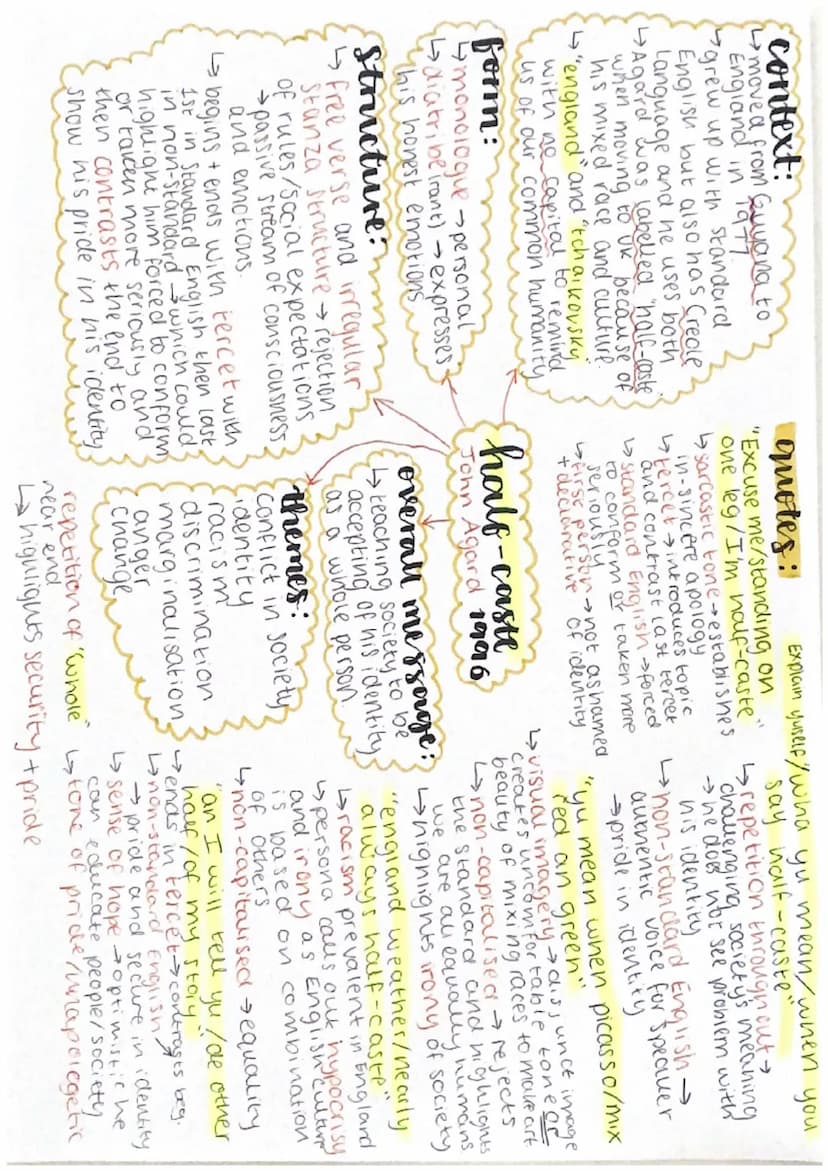 context:
↳ moved from Guyana to
England in 1977.
↳ grew up with standard
English but also has Creole
language and he uses both
↳ Agard was labelled "half-caste
when moving to UK because of
his mixed race and culture.
↳ "england" and "tchaikovsky"
with no capital to remind
us of our common humanity
form:
↳ monologue → personal
↳ diatribe (rant) → expresses
his honest emotions
structure:
↳ free verse and irregular
stanza structure → rejection
of rules/social expectations
→ passive stream of consciousness
and emotions.
↳ begins + ends with tercet with
1st in Standard English then last
in non-standard → which could
highlight him forced to conform
or taken more seriously and
then contrasts the end to
show his pride in his identity
half-caste
John Agard 1996
overall message:
↳ teaching society to be
accepting of his identity
as a whole person.
themes:
conflict in society
identity
racism
discrimination
marginalisation
anger
change
quotes:
"Excuse me/standing on
one leg/I'm half-caste"
↳ sarcastic tone → establishes
in-sincere apology
↳ tercet → introduces topic
and contrast last tercet
↳ standard English → forced
to conform or taken more
seriously
↳ first person → not ashamed
+ declarative of identity
Explain yuself/wha yu mean/when you
say half-caste"
↳ repetition throughout →
challenging society's meaning
→ he does not see problem with
his identity
↳ non-standard English →
authentic voice for speaker
→ pride in identity
"yu mean when picasso/mix
red an green"
↳ visual imagery → disjunct image
creates uncomfortable tone or
beauty of mixing races to make art
↳ non-capitalised → rejects
the standard and highlights
we are all equally humans
↳ highlights irony of society
"england weather/nearly
always half-caste"
↳ racism prevalent in England
↳ persona calls out hypocrisy
and irony as English culture
is based on combination
of others
↳ non-capitalised → equality
"an I will tell yu/de other
half/of my story"
↳ ends in tercet → contrasts beg.
↳ non-standard English
→ pride and secure in identity
↳ sense of hope → optimistic he
can educate people/society
↳ tone of pride/unapologetic
repetition of "whole"
near end
↳ highlights security + pride